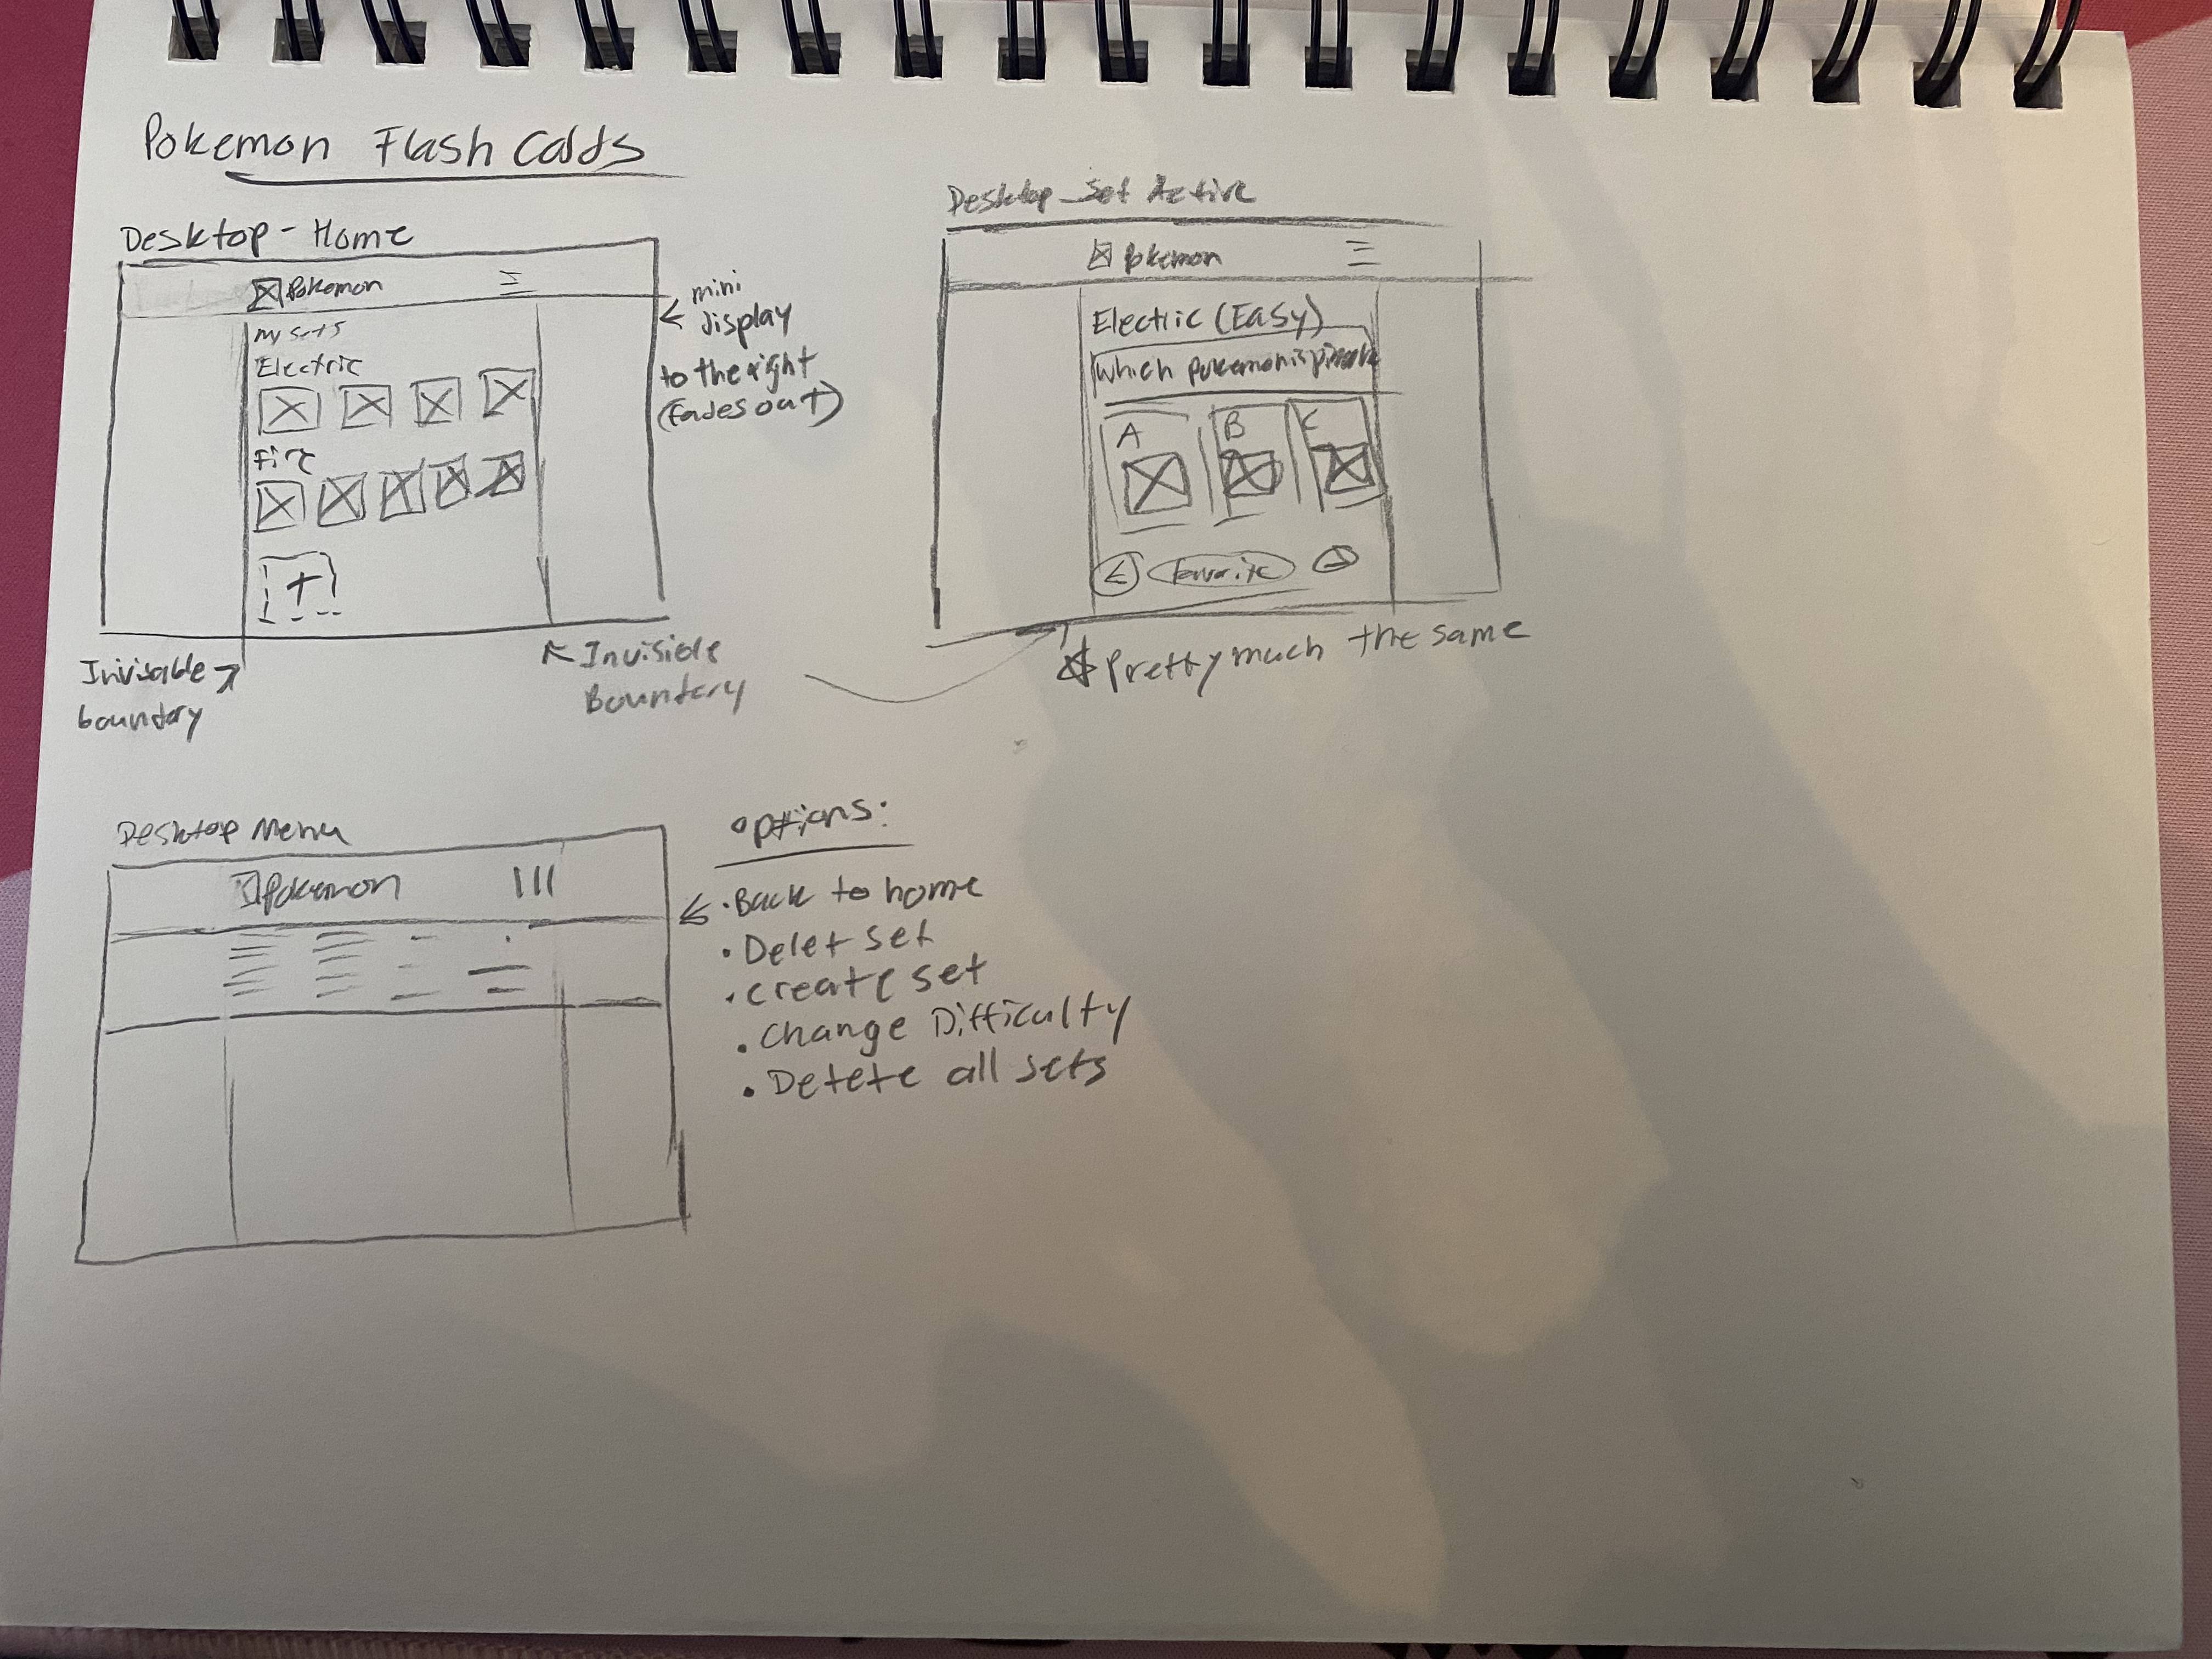 Pokemon Flash Cards
Desktop - Home
Pokemon
my sets
Electric
Fire
+
mini
display
to the right
(fades out)
Invisable
boundary
Invisible
Boundary
Desktop - Set Active
Pokemon
Electric (Easy)
which pokemon is
A B C
Favorite
Pretty much the same
Desktop Menu
Pokemon
options:
• Back to home
• Delet set
• create set
• Change Difficulty
• Detete all sets